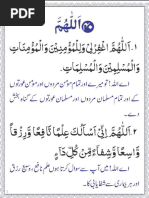 اَللّٰهُمَّ ۴۰
۱۔ اَللّٰهُمَّ اغْفِرْلِیْ وَلِلْمُؤْمِنِیْنَ وَالْمُؤْمِنَاتِ
وَالْمُسْلِمِیْنَ وَالْمُسْلِمَاتِ۔
اے اللہ! میرے اور تمام مومن مردوں اور مومن عورتوں
کے اور تمام مسلمان مردوں اور مسلمان عورتوں کے گناہ بخش
دے۔
۲۔ اَللّٰهُمَّ اِنِّیْ اَسْاَلُكَ عِلْمًا نَافِعًا وَرِزْقًا
وَاسِعًا وَشِفَاءً مِّنْ كُلِّ دَاءٍ۔
اے اللہ! میں آپ سے سوال کرتا ہوں علم نافع، وسیع رزق
اور ہر بیماری سے شفایابی کا۔